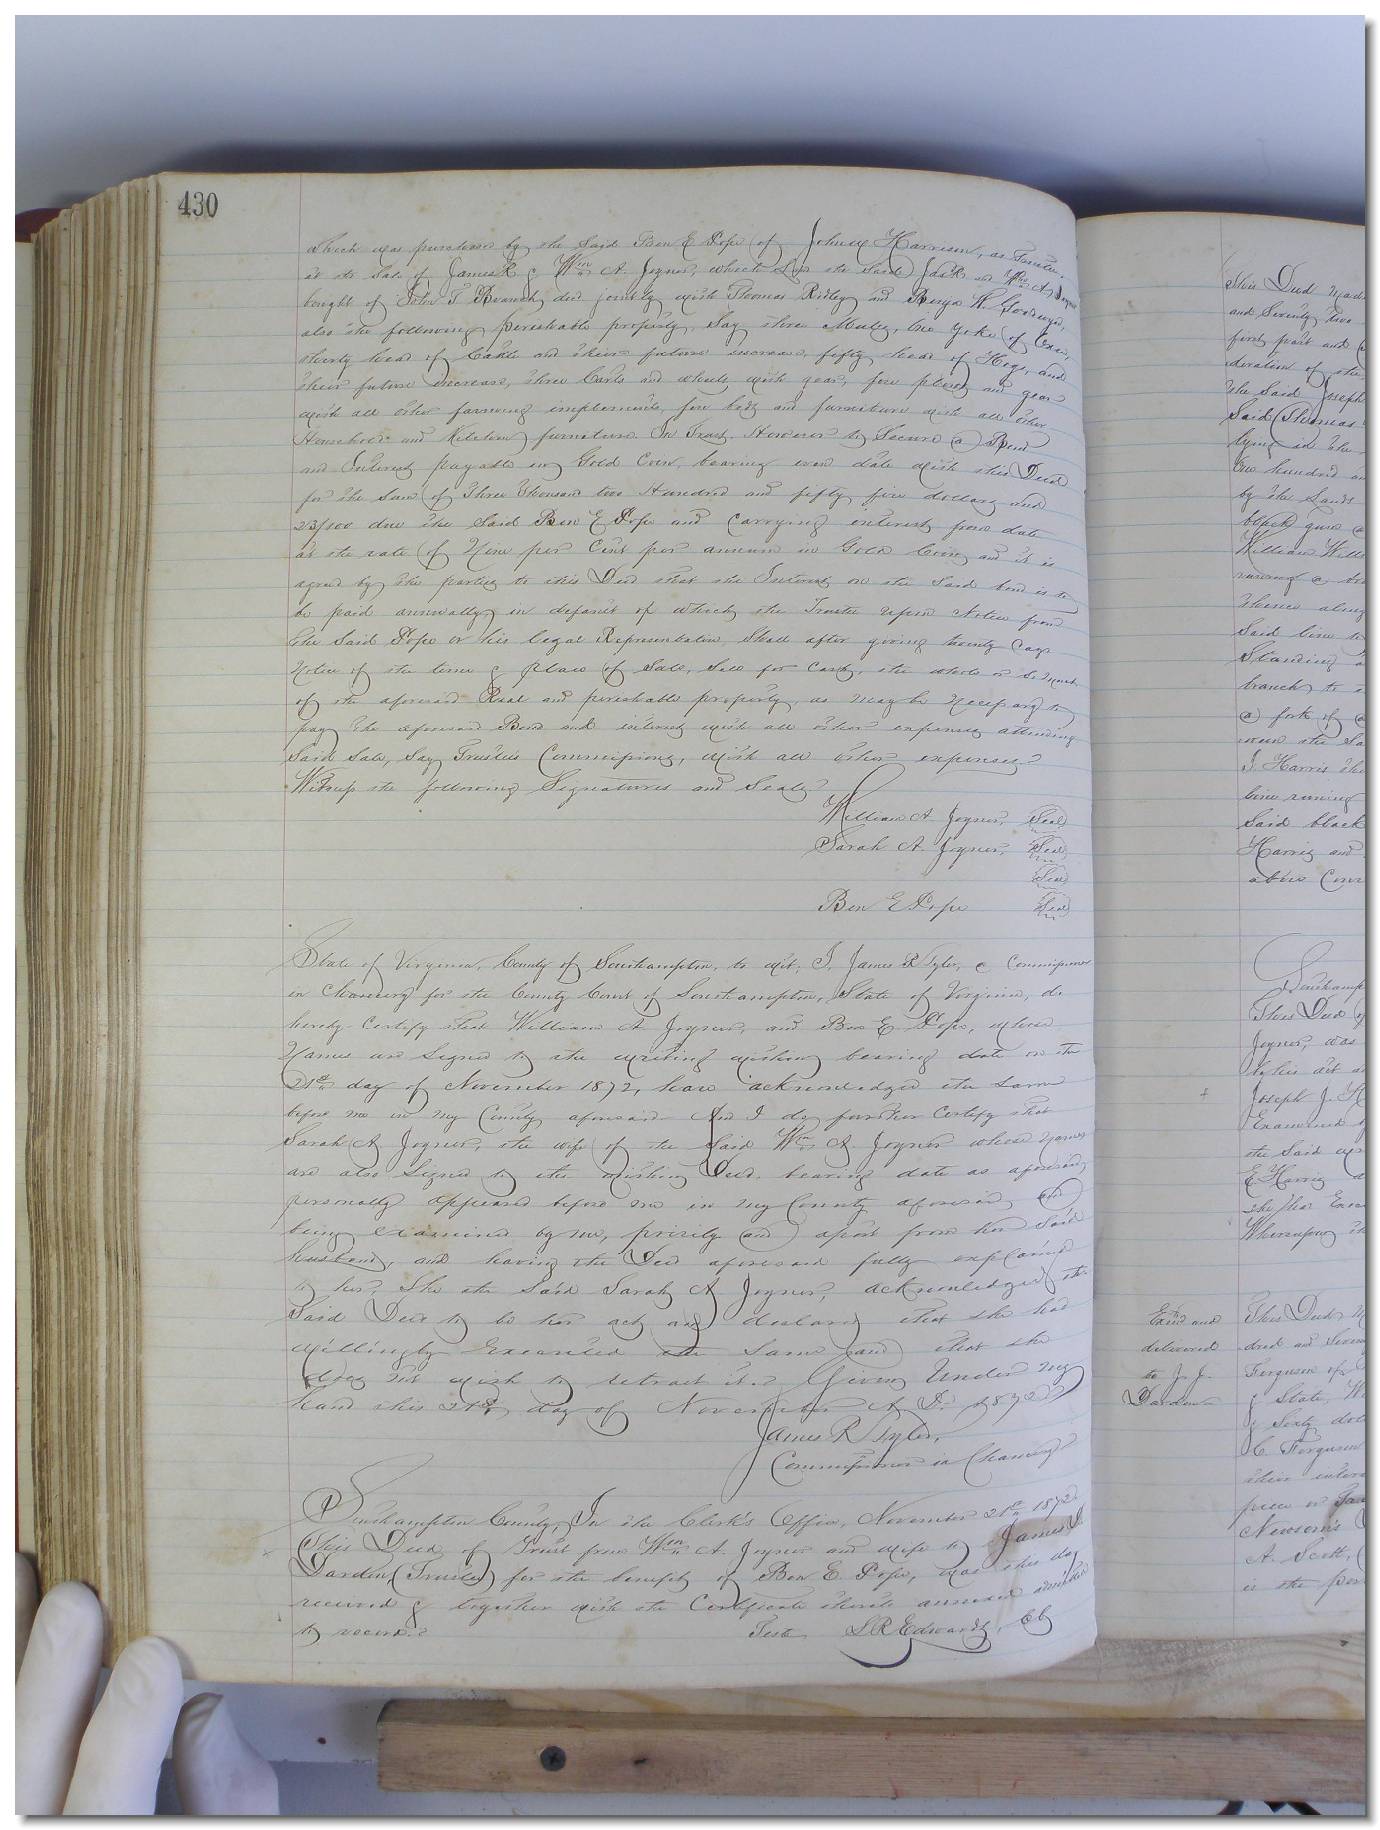 430
which was purchased by the Said Ben E Pope of John W Harrison, as Trustee,
at the Sale of James R & Wm A. Joyner, which the said Jas R and Wm A Joyner
bought of John T Branch, dec'd jointly with Thomas Ridley and Benja W. Goodwyn,
also the following perishable property, Say three Mules, One Yoke of Oxen,
thirty head of Cattle and their future increase, fifty head of Hogs, and
their future increase, three Carts and wheels with gear, five plows and gear
with all other farming implements, five beds and furniture with all other
Household and Kitchen furniture. In Trust However to Secure a Bond
and Interest payable in Gold Coin, bearing even date with this Deed
for the Sum of Three Thousand two Hundred and fifty five dollars and
23/100 due the Said Ben E Pope and Carrying interest from date
at the rate of Nine per Cent per annum in Gold Coin, and it is
agreed by the parties to this Deed that the Interest on the Said bond is to
be paid annually, in default of which the Trustee upon Notice from
the Said Pope or his legal Representative Shall after giving twenty days
Notice of the time & place of Sale, Sell for Cash, the whole or So much
of the aforesaid Real and perishable property as may be Necessary to
pay the aforesaid Bond and interest with all other expenses attending
Said Sale, Say Trustees Commissions, with all other expenses.
Witness the following Signatures and Seals
William A Joyner, Seal
Sarah A. Joyner, Seal
Seal
Ben E Pope Seal
State of Virginia, County of Southampton, to wit; I, James R Tyler, a Commissioner
in Chancery for the County Court of Southampton, State of Virginia, do
hereby Certify that William A Joyner, and Ben E Pope, whose
Names are Signed to the writing within bearing date on the
21st day of November 1872, have acknowledged the Same
before me in my County aforesaid And I do further Certify that
Sarah A Joyner, the wife of the Said Wm A. Joyner whose Names
are also Signed to the within Deed, bearing date as aforesaid,
personally appeared before me in my County aforesaid, and
being examined by me, privily and apart from her Said
husband, and having the Deed aforesaid fully explained
to her, She the Said Sarah A Joyner, acknowledged the
Said Deed to be her act and declared that she had
willingly Executed the Same and that she
does not wish to retract it. Given Under my
hand this 21st day of November A D. 1872
James R Tyler,
Commissioner in Chancery
Southampton County, In the Clerk's Office, November 21st 1872
This Deed of Trust from Wm A. Joyner and wife to James D.
Darden, (Trustee) for the benefit of Ben E. Pope, was this day
received & together with the Certificate thereto annexed admitted
to record.
Teste L R Edwards, Clk
This Deed made
and Seventy two
first part and
deration of the
the Said Joseph
Said Thomas
lying in the
One hundred
by the lands
black gum
William
runing a
thence along
Said line to
Standing
branch to
a fork of
the Sa
J. Harris the
line runing
Said black
Harris and
above Conv
Southamp
This Deed
Joyner, was
his act
Joseph J.
Examined
the Said
E Harris
Whereupon
Exd and
delivered
to J. J.
Darden
This Deed
dred and Seven
Ferguson of
& State,
& Sixty dol
C. Ferguson
piece or
Newsom's
A. Scott,
is the